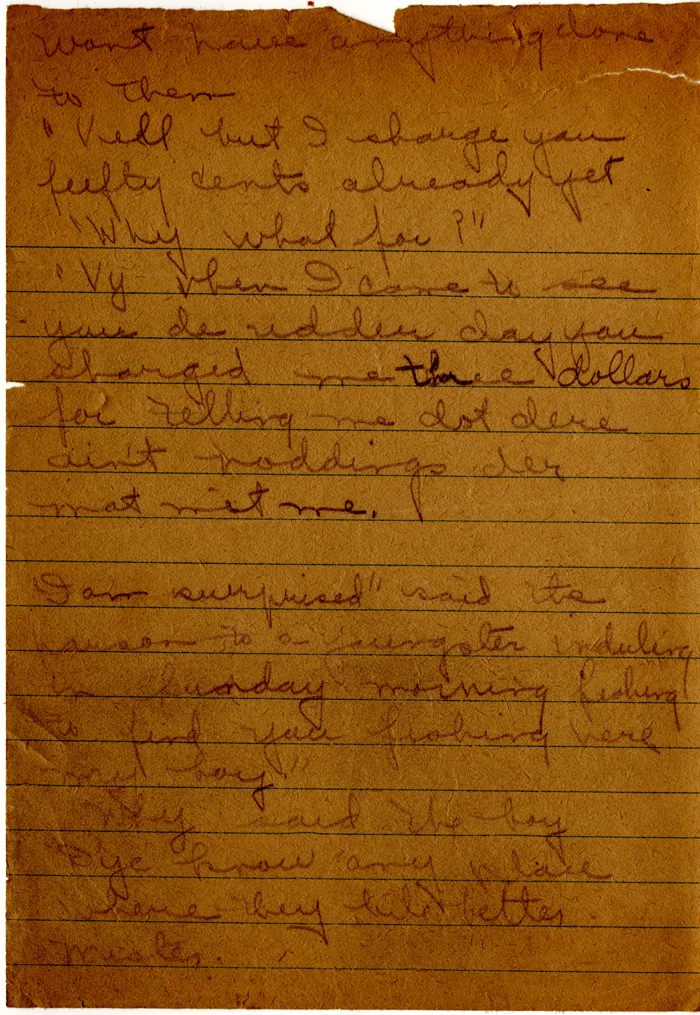 wont have anything done
to them
"Vell but I sharge you
feefty cents already yet
"Why what for?"
"Vy vhen I came to see
you de udder day you
sharged me three dollars
for telling me dot dere
ain't noddings der
mat mit me.
I am surprised" said the
parson to a youngster induling
in Sunday morning fishing
to find you fishing here
my boy"
Why said the boy
D'ye know any place
where they bite better
Mister.